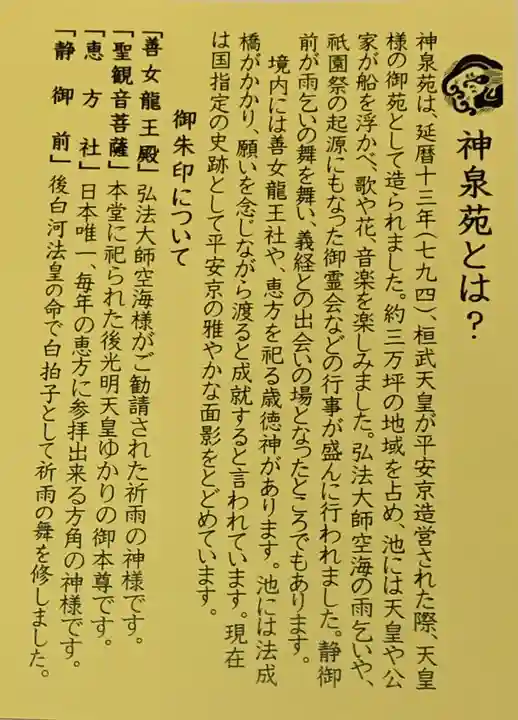 神泉苑とは？
神泉苑は、延暦十三年(七九四)、桓武天皇が平安京造営された際、天皇
様の御苑として造られました。約三万坪の地域を占め、池には天皇や公
家が船を浮かべ、歌や花、音楽を楽しみました。弘法大師空海の雨乞いや、
祇園祭の起源にもなった御霊会などの行事が盛んに行われました。静御
前が雨乞いの舞を舞い、義経との出会いの場となったところでもあります。
境内には善女龍王社や、恵方を祀る歳徳神があります。池には法成
橋がかかり、願いを念じながら渡ると成就すると言われています。現在
は国指定の史跡として平安京の雅やかな面影をとどめています。
御朱印について
「善女龍王殿」弘法大師空海様がご勧請された祈雨の神様です。
「聖観音菩薩」本堂に祀られた後光明天皇ゆかりの御本尊です。
「恵方社」日本唯一、毎年の恵方に参拝出来る方角の神様です。
「静御前」後白河法皇の命で白拍子として祈雨の舞を修しました。